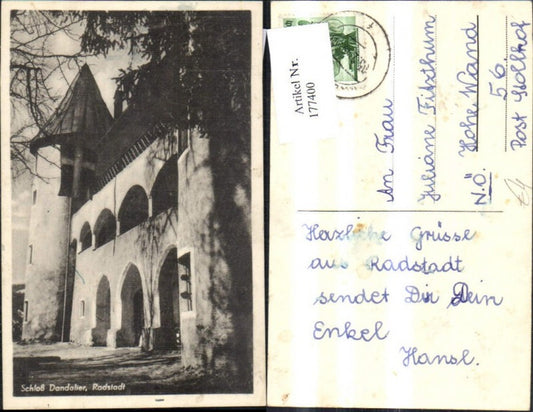 Schloß Dandalier, Radstadt
Artikel Nr.
177400
An Frau
Juliane Fitzthum
Hohe Wand
N.Ö. 56.
Post Stollhof
Herzliche Grüsse
aus Radstadt
sendet Dir Dein
Enkel
Hansl.